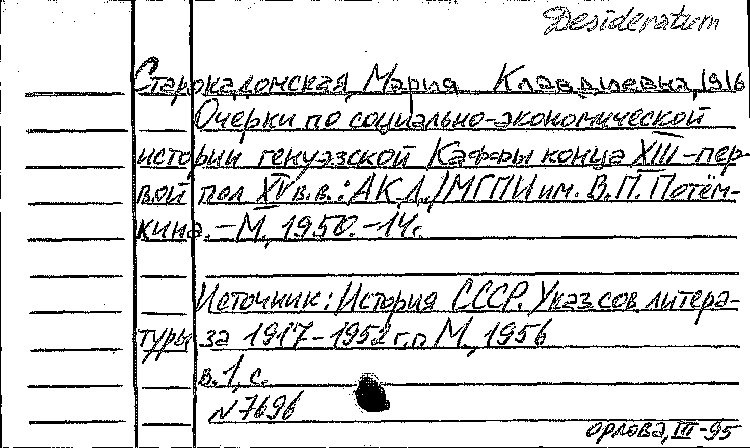 Desideratum
Старокадомская, Мария Клавдиевна, 1916
Очерки по социально-экономической
истории генуэзской Каффы конца XIII-пер-
вой пол XV в.в.: АК Д./МГПИ им. В.П. Потём-
кина.-М., 1950.-14с.
Источник: История СССР. Указ сов литера-
туры за 1917-1952 г.г. М., 1956
в. 1, с.
N7696
Орлова, III-95